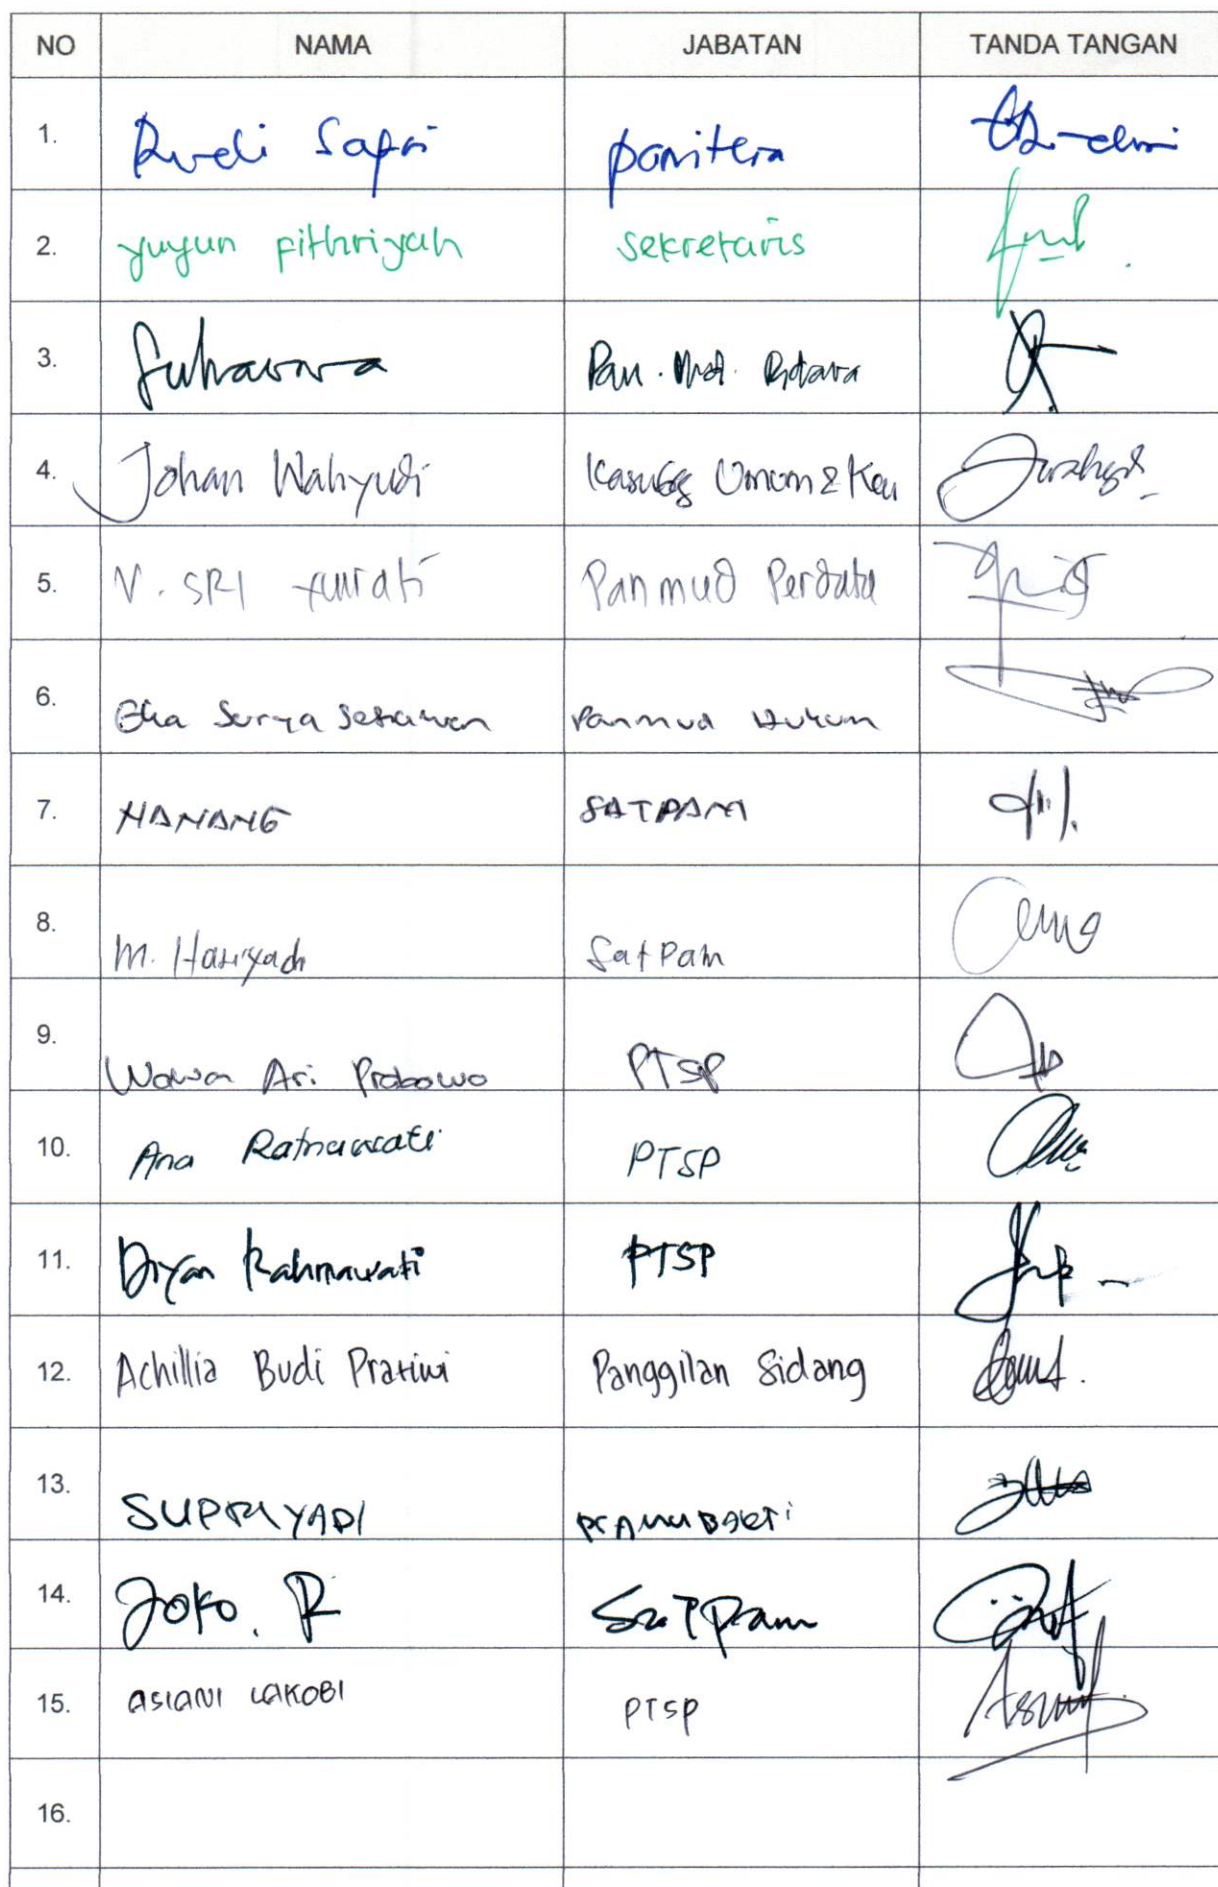 NO NAMA JABATAN TANDA TANGAN
1. Rudi Safri panitera
2. yuyun fithriyah sekretaris
3. Suhawra Pan.
4. Johan Wahyudi Kasubbg Umum & Keu
5. V. SRI Panmud Perdata
6. Eka Surya Setiawan Panmud Hukum
7. NANANG SATPAM
8. M. Hariyadi SatPam
9. Wawan Ari Prabowo PTSP
10. Ana Ratnawati PTSP
11. Diyan Rahmawati PTSP
12. Achillia Budi Pratiwi Panggilan Sidang
13. SUPRIYADI PRAMUBAKTI
14. Joko. P SatPam
15. ASIANI LAKOBI PTSP
16.